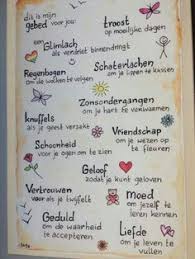 dit is mijn
gebed voor jou:
troost
op moeilijke dagen
een
Glimlach
als verdriet binnendringt
Regenbogen
om de wolken te volgen
Schaterlachen
om je lippen te kussen
Zonsondergangen
om je hart te verwarmen
knuffels
als je geest verzakt
Vriendschap
om je wezen op
te fleuren
Schoonheid
voor je ogen om te zien
Geloof
zodat je kunt geloven
Vertrouwen
voor als je twijfelt
moed
om jezelf te
leren kennen
Geduld
om de waarheid
te accepteren
Liefde
om je leven te
vullen